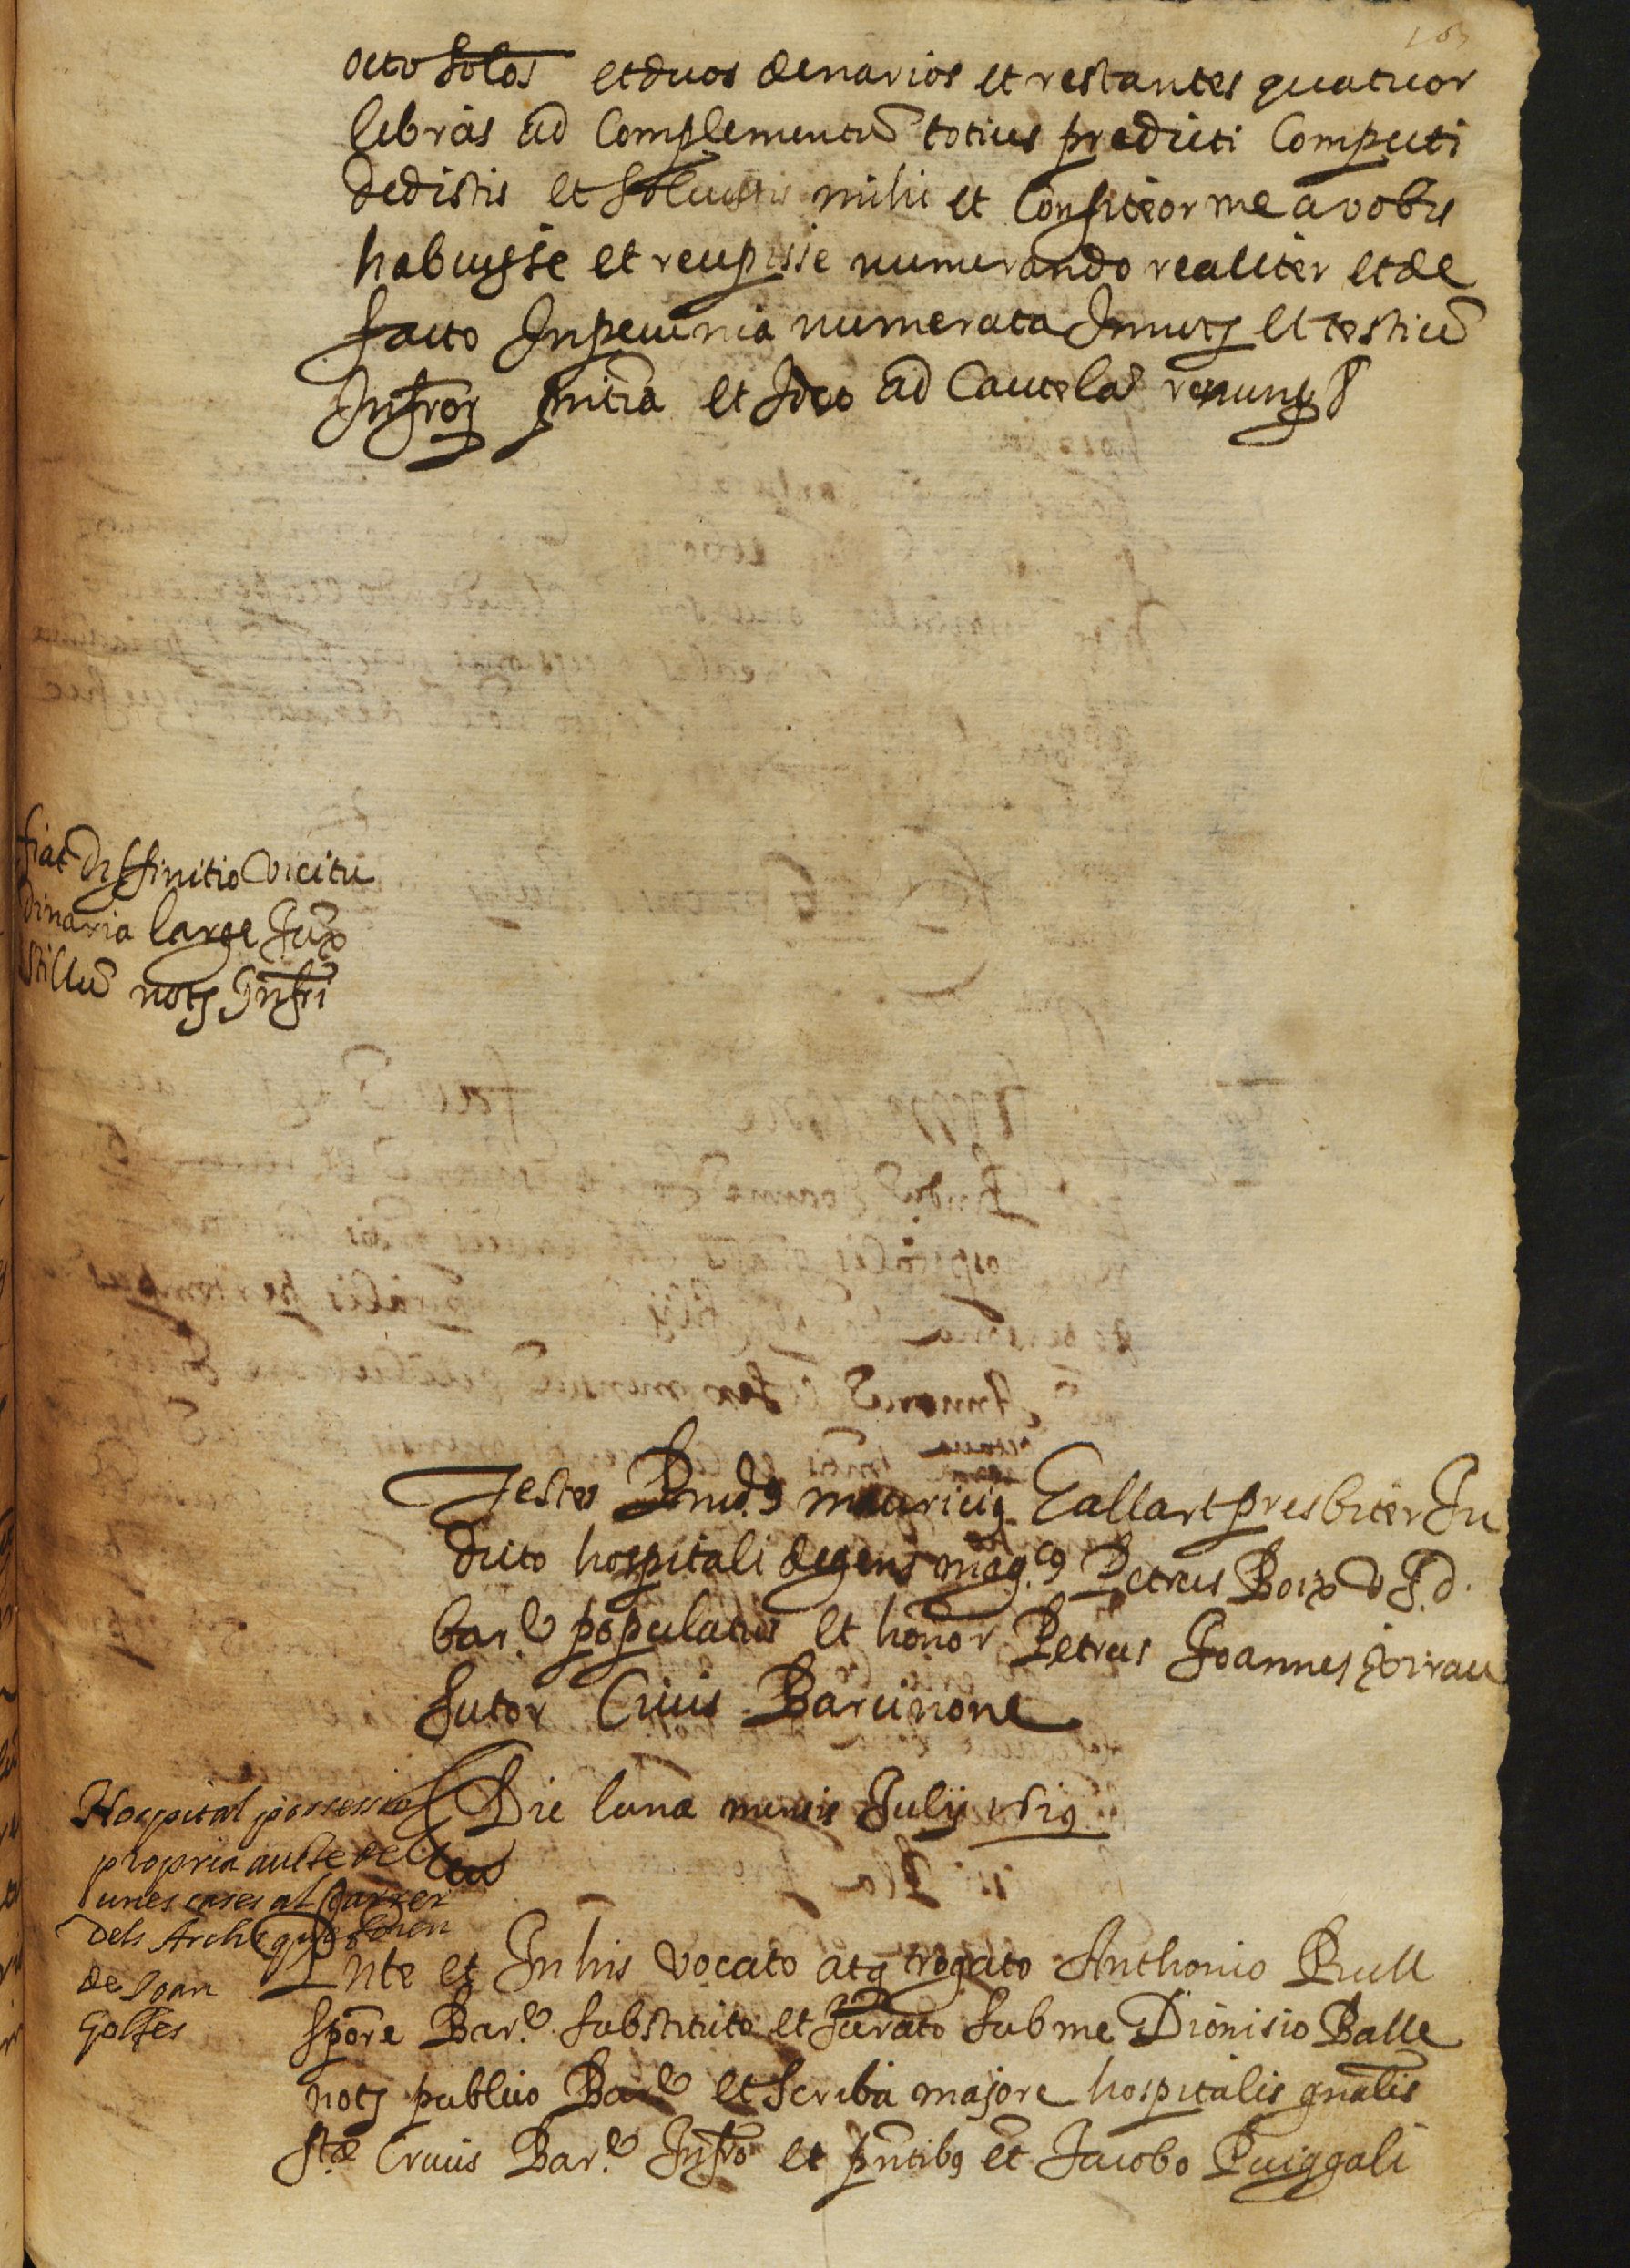 octo solos et duos denarios et restantes quatuor
libras ad Complementũ totius predicti Computi
dedistis et solvistis mihi et Confiteor me a vobis
habuisse et recepisse numerando realiter et de
facto In pecunia numerata In notj et testiũ
Infror pñtia et Ideo ad Cautelã renung
fiat diffinitio vicitu
dinaria large Jux
stillũ notj Infri
Testes Rnd.9 mauricius Gallart presbiter In
dicto hospitali degens mag.cus Petrus Boix V J. d.
bar.e populatus et honor Petrus Joannes Xirau
sutor Civis Barcinone
Hospital possessio
propria aucte del
unes cases al Carrer
dels Archs que foren
de Joan
Golfes
Die lunæ mensis Julij
Pñte et In his vocato atq rogato Anthonio Rull
spõre Bar.e substituto et Jurato sub me Dionisio Balle
notj publico Bar.e et scriba majore hospitalis gñalis
stæ Crucis Bar.e Infro et pñtibus et Jacobo Puiggali